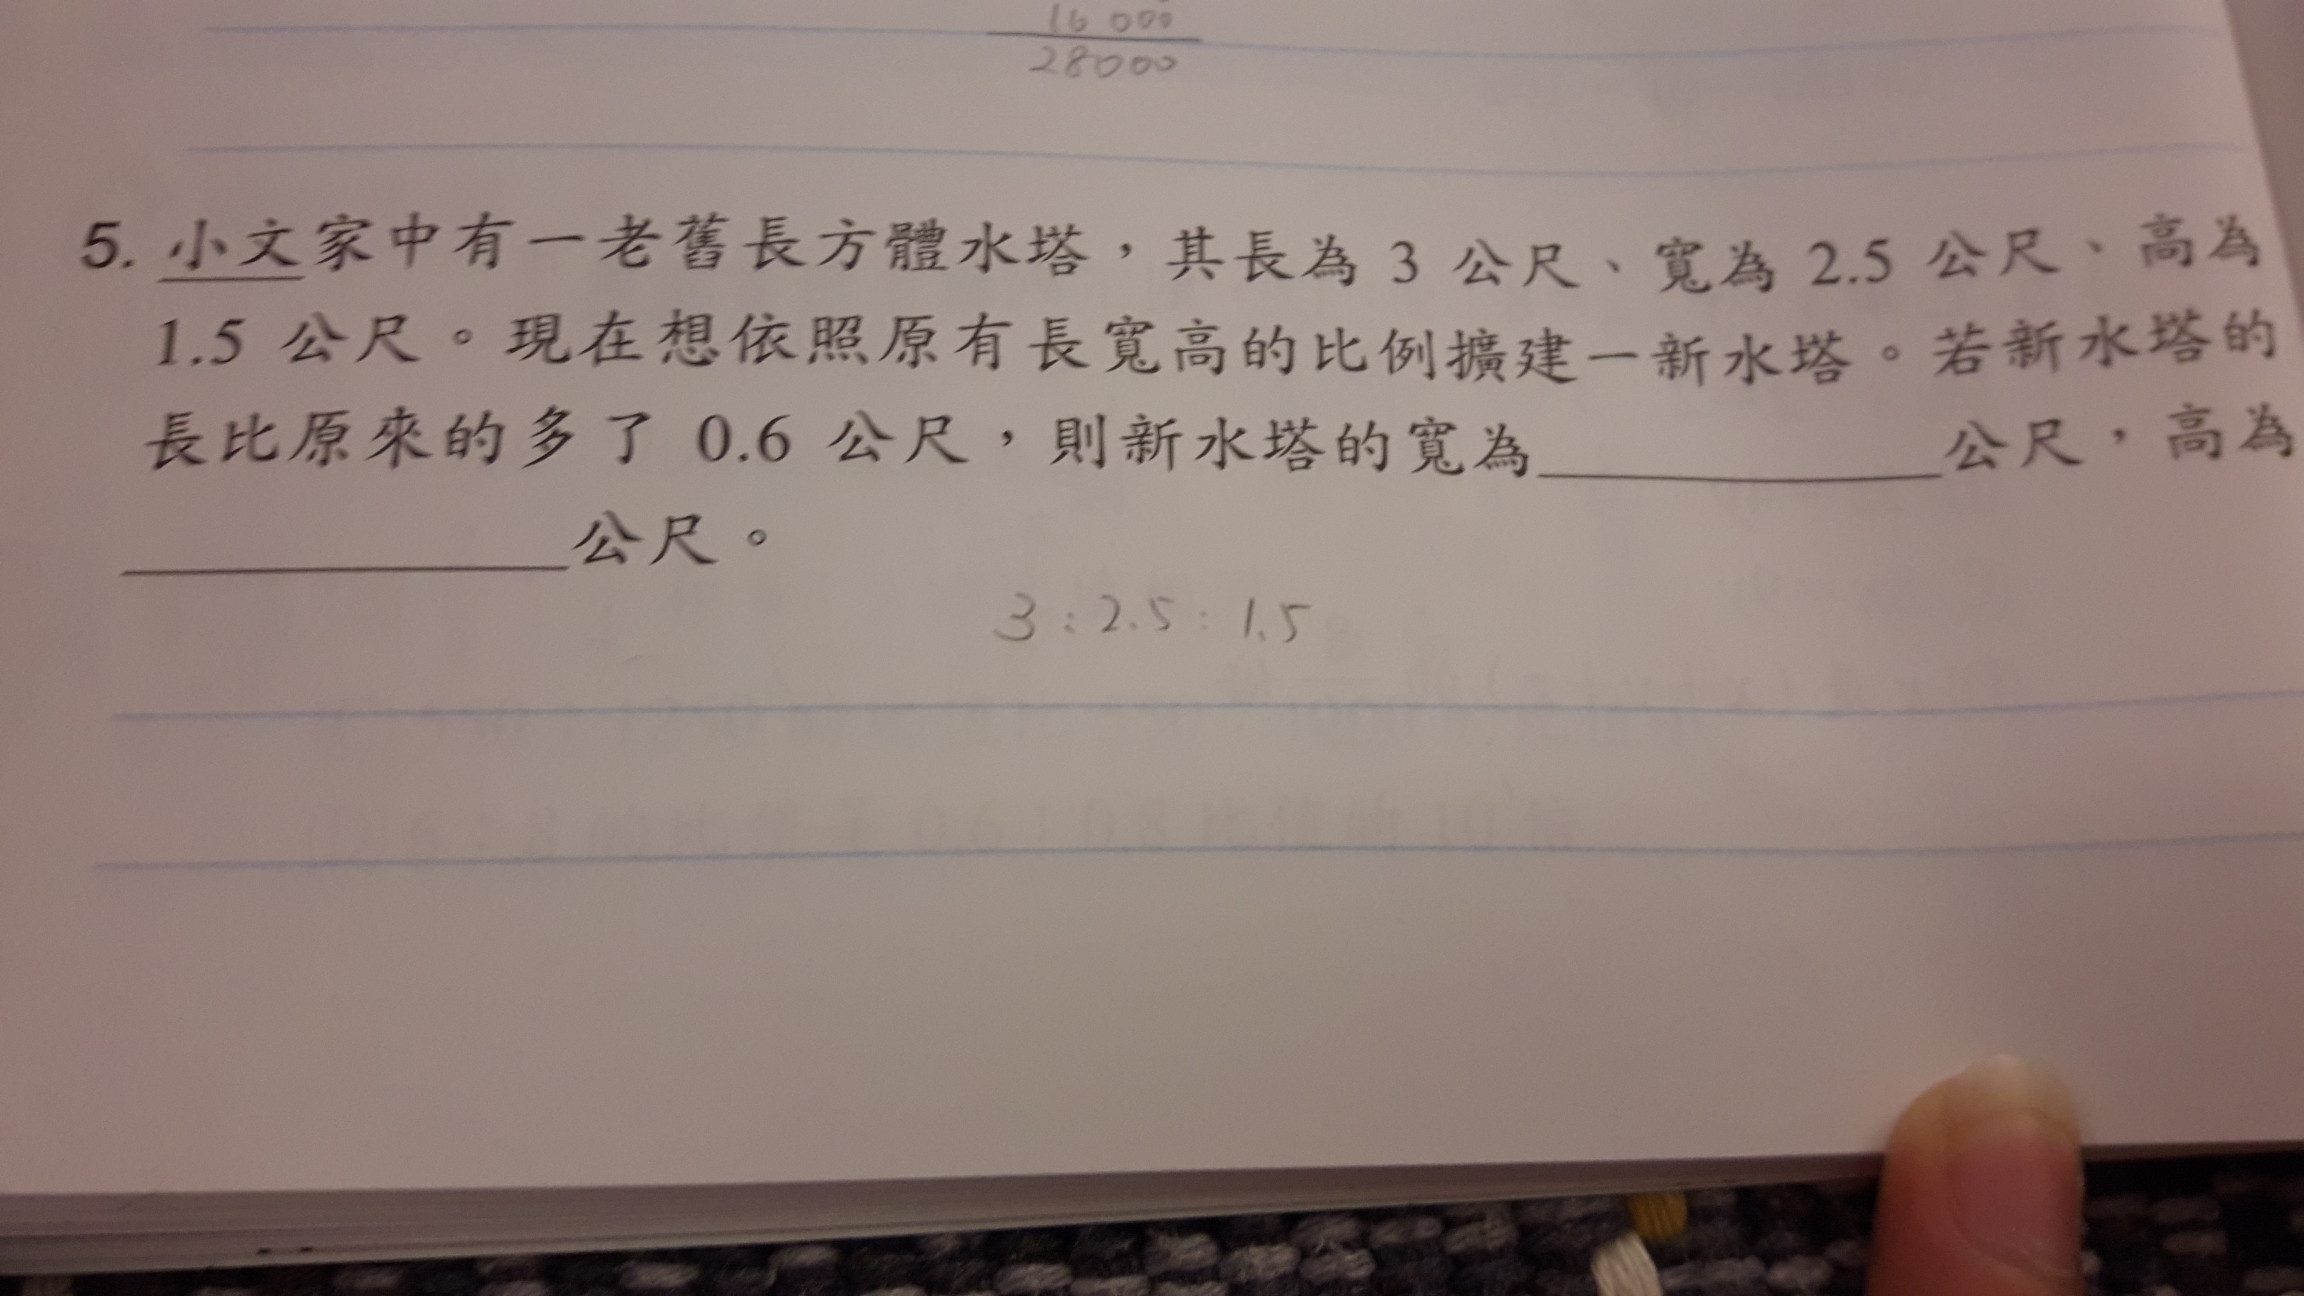 16 000
28000
5. 小文家中有一老舊長方體水塔，其長為 3 公尺、寬為 2.5 公尺、高為
1.5 公尺。現在想依照原有長寬高的比例擴建一新水塔。若新水塔的
長比原來的多了 0.6 公尺，則新水塔的寬為____________公尺，高為
____________公尺。
3 : 2.5 : 1.5